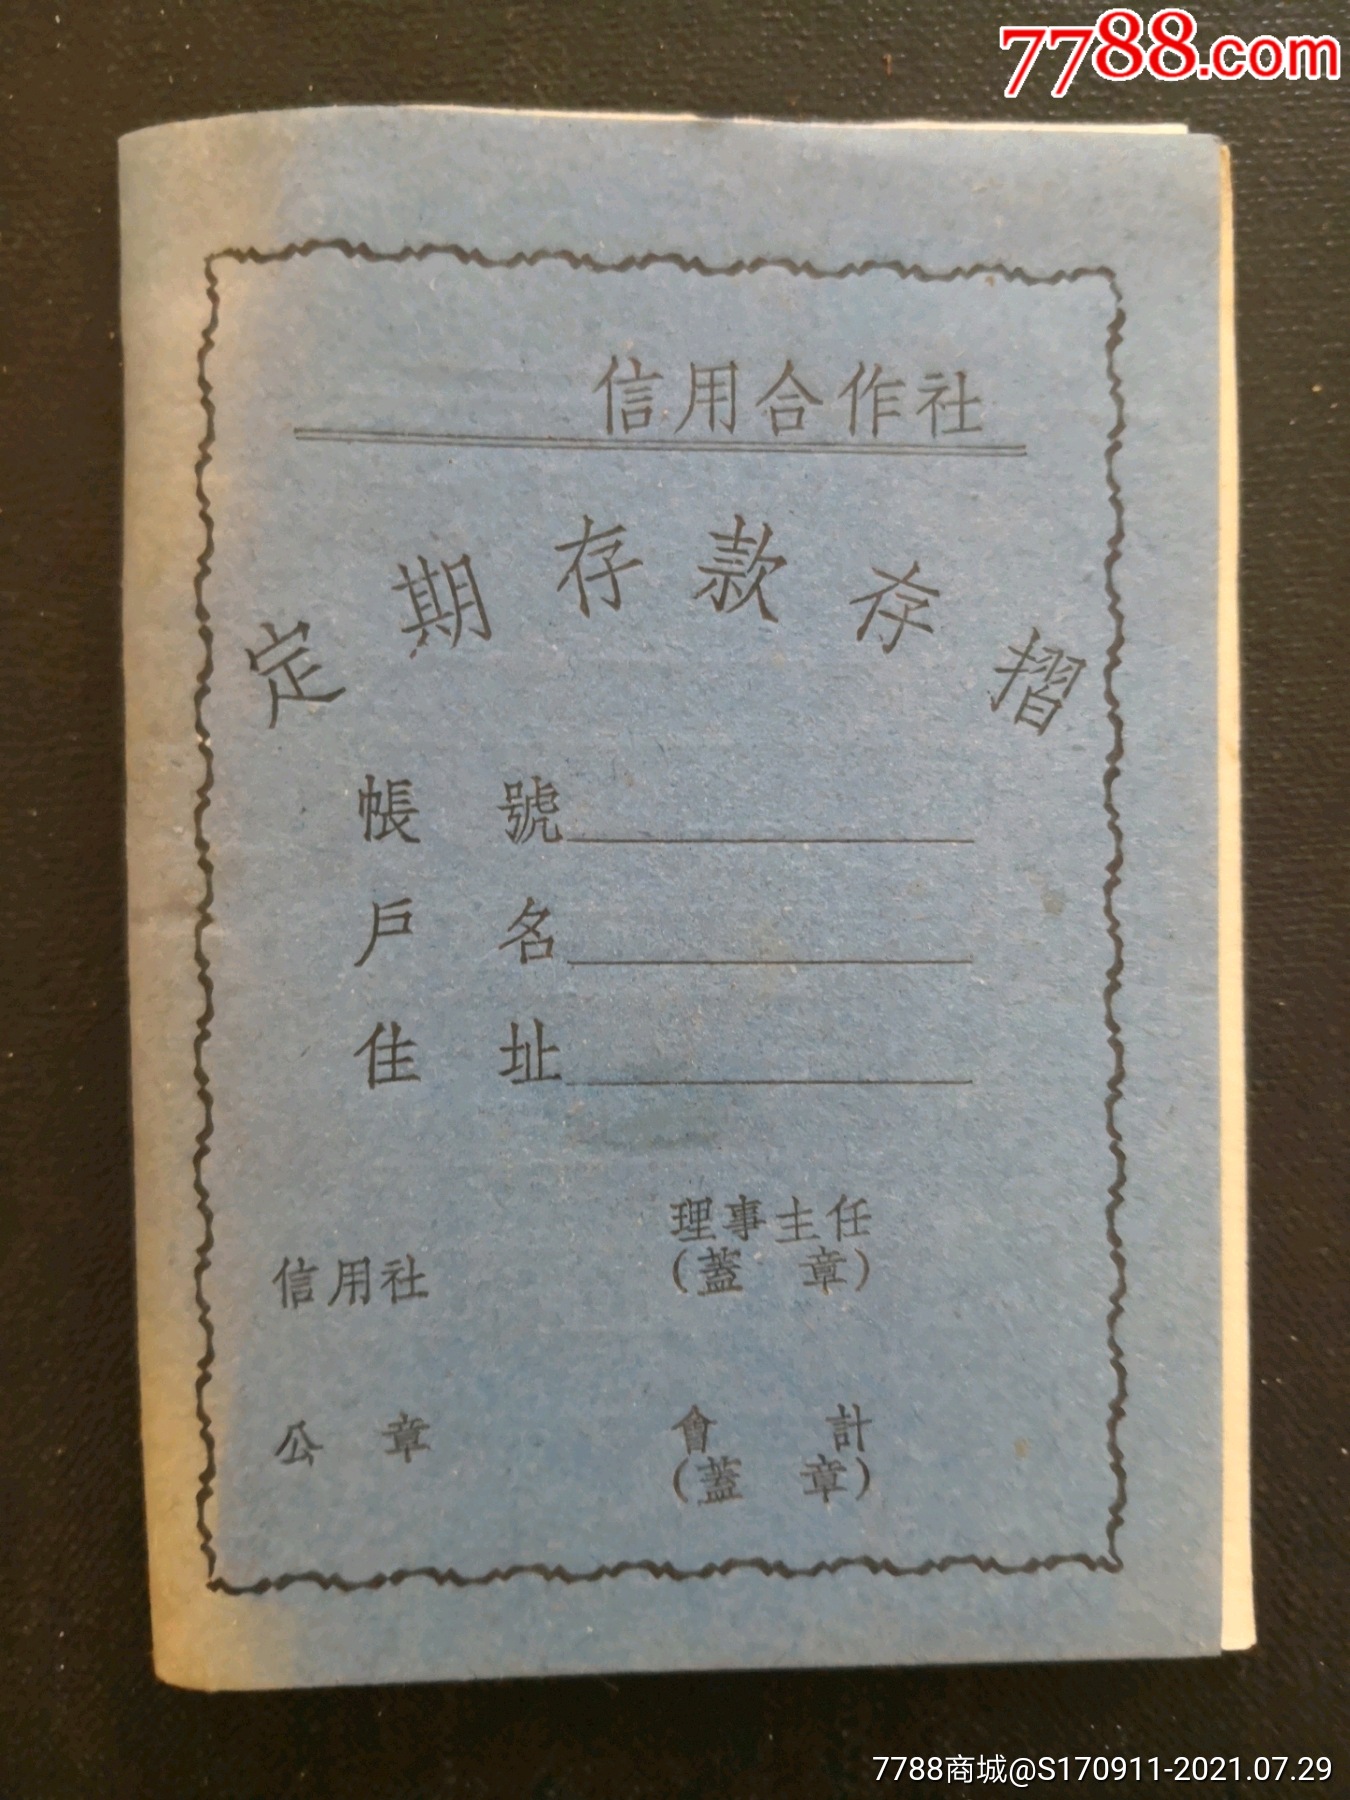 7788.com
信用合作社
定期存款存摺
帳 號
戶 名
住 址
理事主任
(蓋 章)
信用社
公 章
會 計
(蓋 章)
7788商城@S170911-2021.07.29